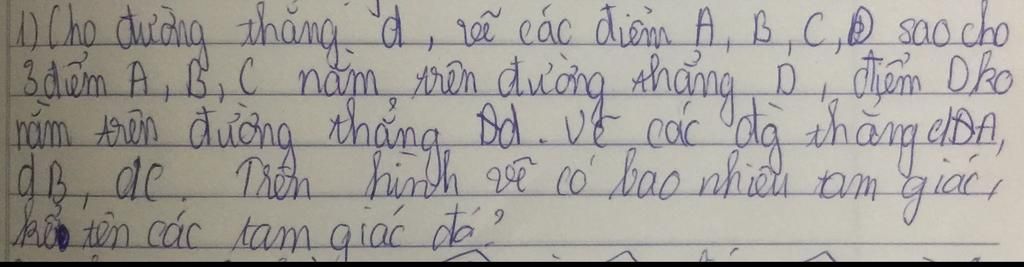 1) Cho đường thẳng d, vẽ các điểm A, B, C, D sao cho
3 điểm A, B, C nằm trên đường thẳng D, điểm D ko
nằm trên đường thẳng d. Vẽ các đg thẳng dDA,
dB, dC. Trên hình vẽ có bao nhiêu tam giác,
kể tên các tam giác đó?